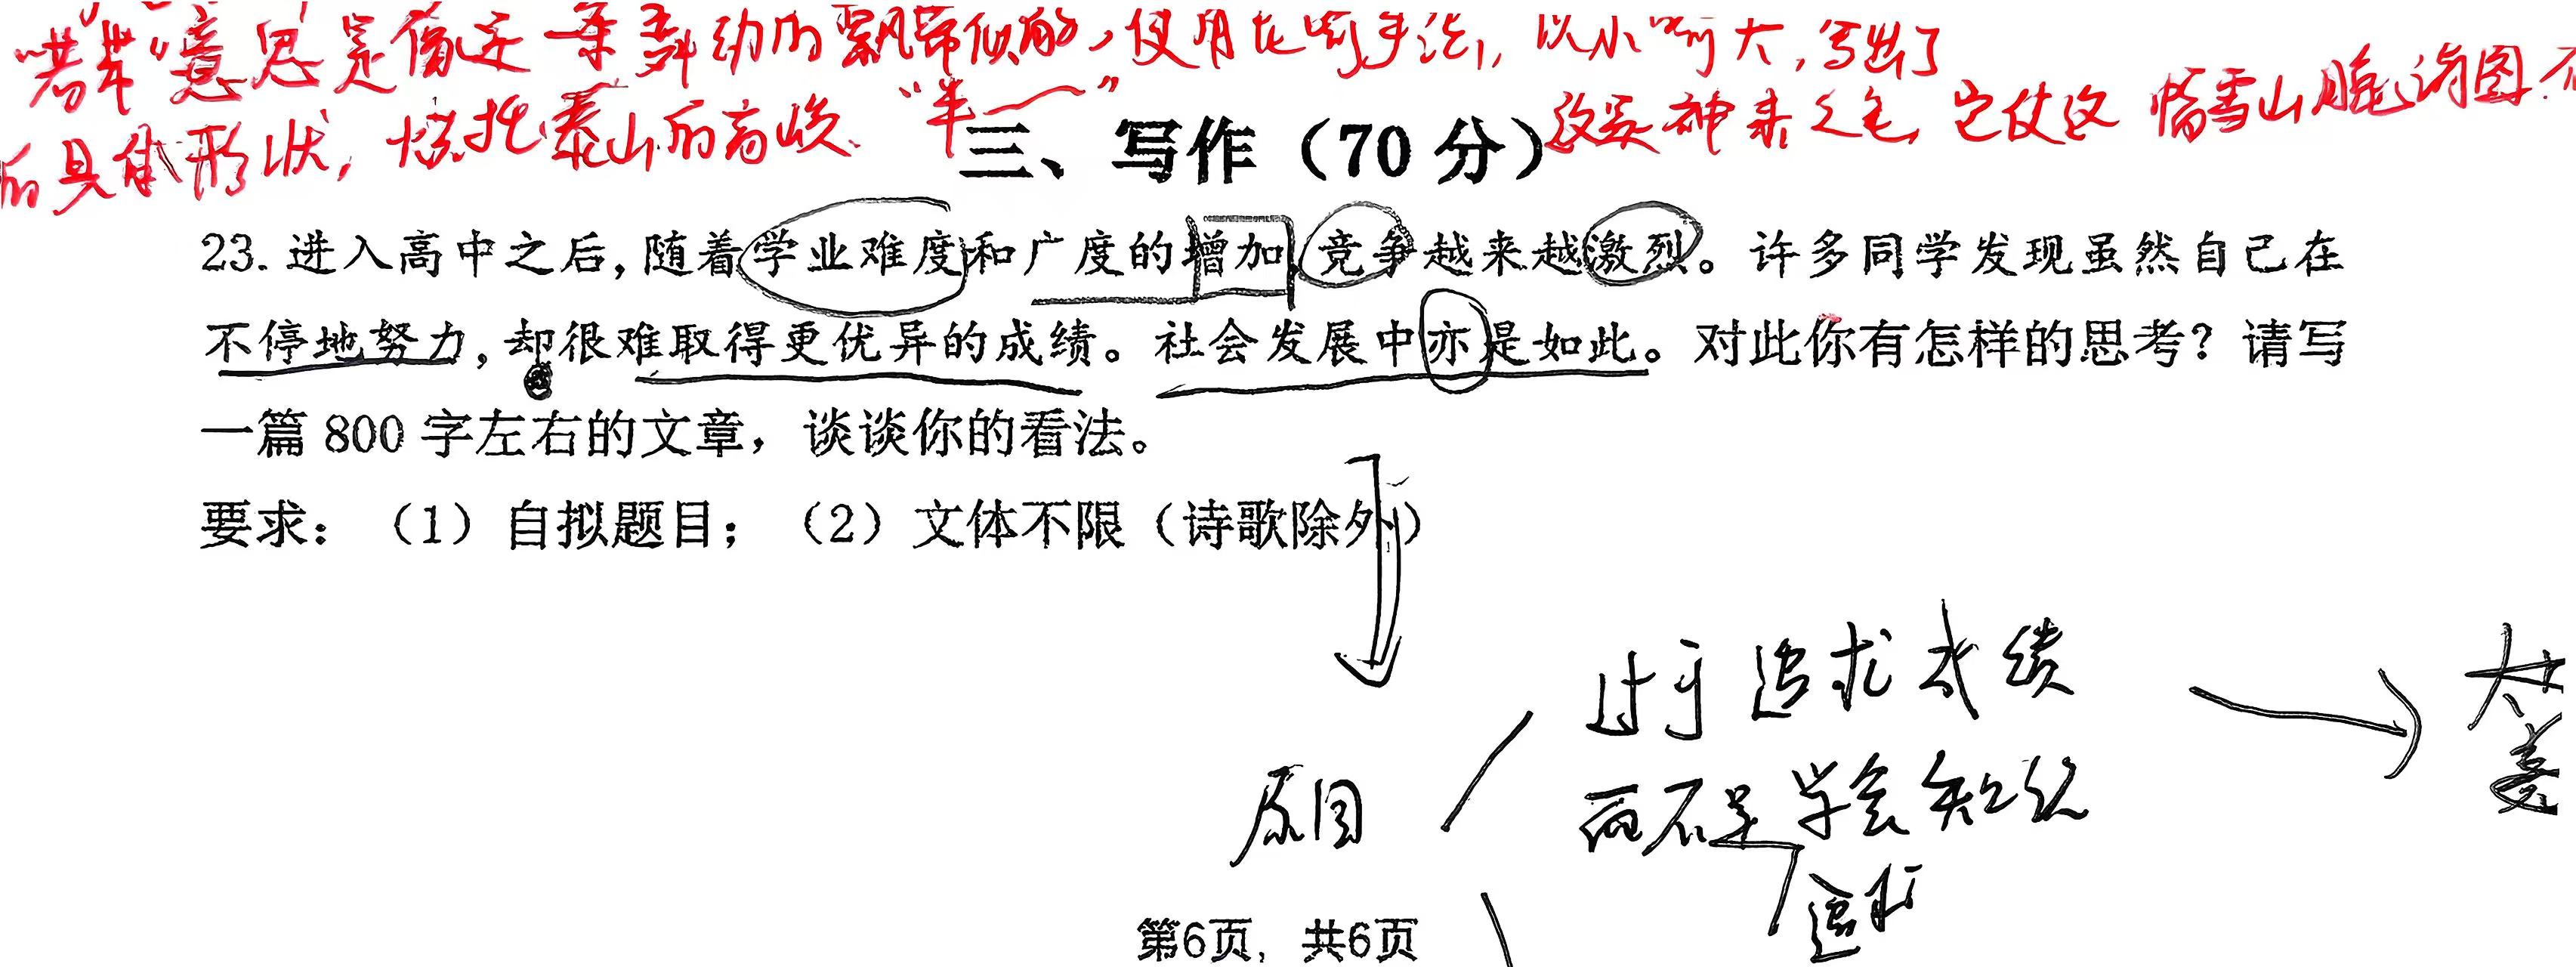 “若带”意思是像是一条舞动的飘带似的，使用比喻手法，以小喻大，写出了
的具体形状，烘托泰山的高峻。“半
这是神来之笔，它使这 雪山 图
三、写作（70 分）
23. 进入高中之后，随着学业难度和广度的增加，竞争越来越激烈。许多同学发现虽然自己在
不停地努力，却很难取得更优异的成绩。社会发展中亦是如此。对此你有怎样的思考？请写
一篇 800 字左右的文章，谈谈你的看法。
要求：（1）自拟题目；（2）文体不限（诗歌除外）
过于追求成绩
而不是学会知识
追求
原因
第6页，共6页